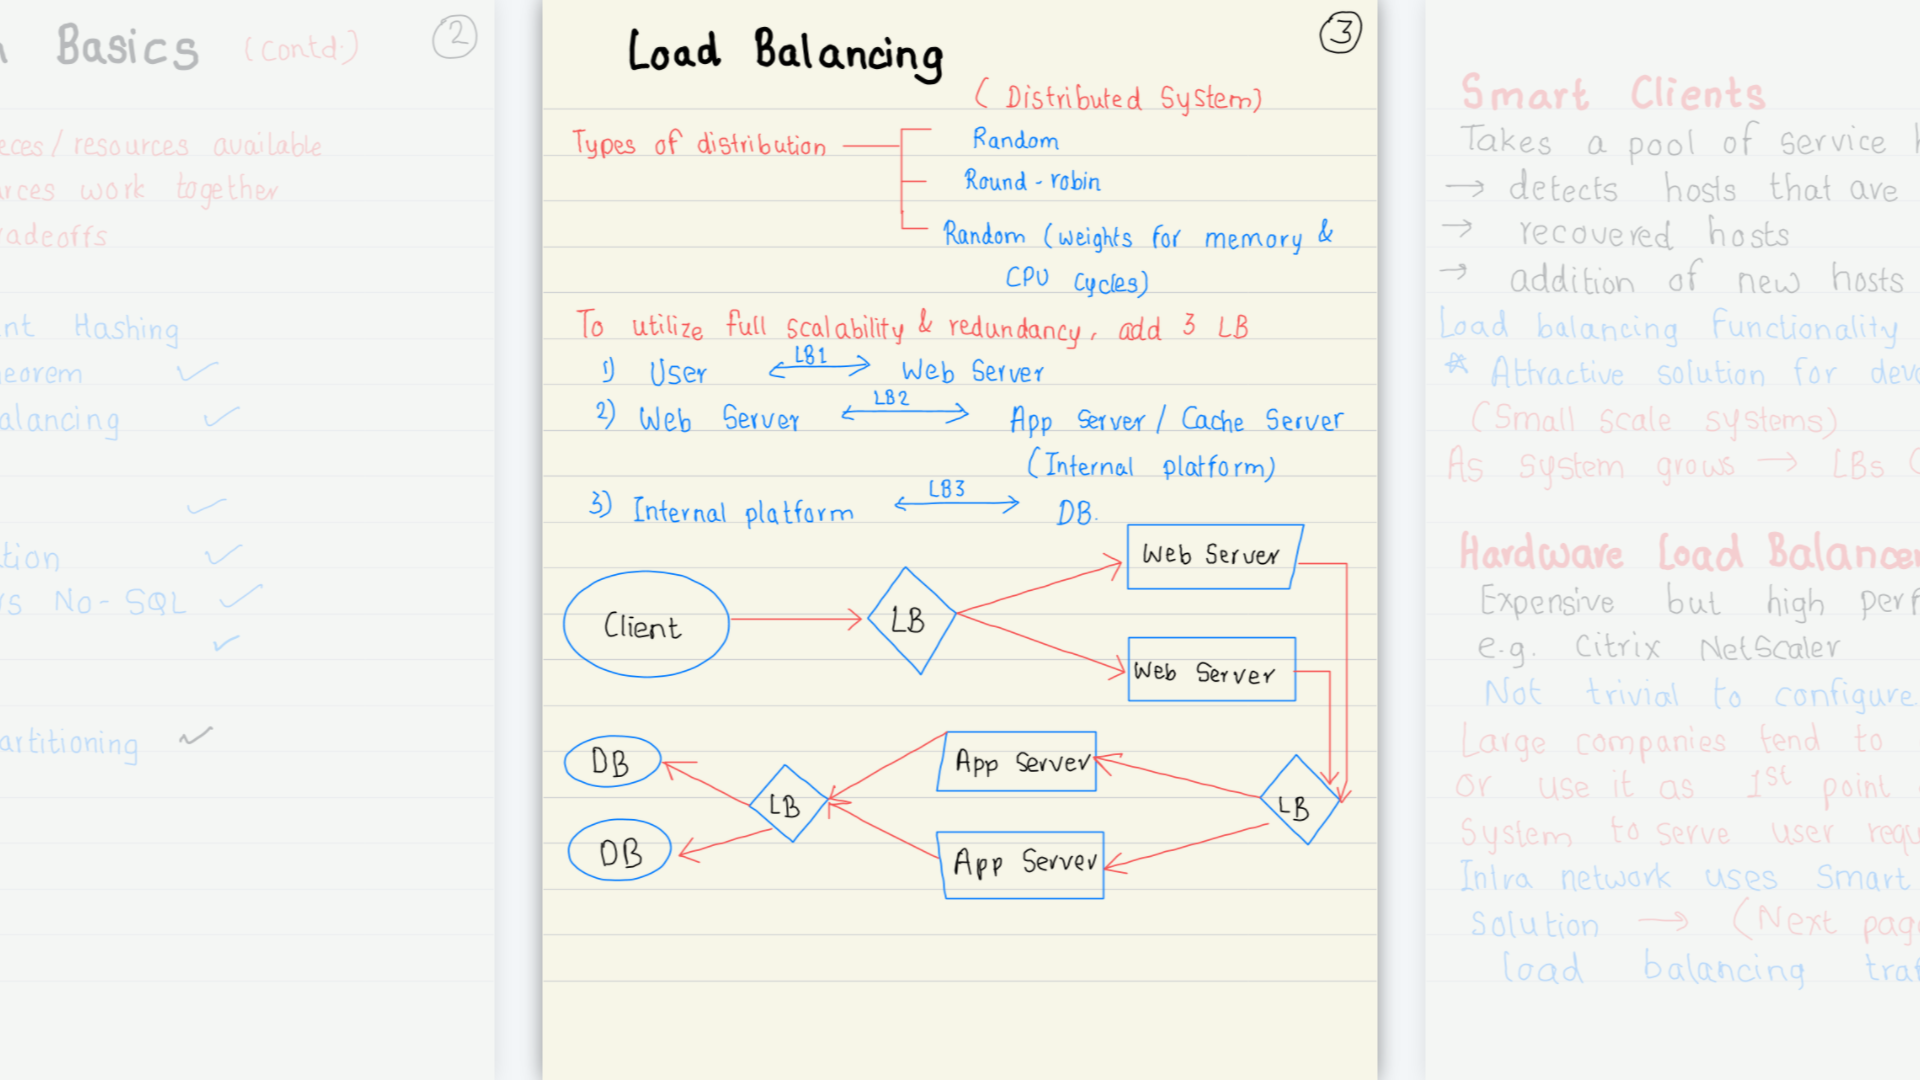 Basics (Contd.) 2
resources available
work together
Hashing
No-SQL
Load Balancing 3
(Distributed System)
Types of distribution
Random
Round-robin
Random (weights for memory &
CPU cycles)
To utilize full scalability & redundancy, add 3 LB
1) User LB1 Web Server
2) Web Server LB2 App Server / Cache Server
(Internal platform)
3) Internal platform LB3 DB.
Web Server
Client
LB
Web Server
DB
App Server
LB
LB
DB
App Server
Smart Clients
Takes a pool of service
→ detects hosts that are
→ recovered hosts
→ addition of new hosts
Load balancing functionality
* Attractive solution for
(Small scale systems)
As system grows → LBs
Hardware Load
Expensive but high
e.g. Citrix NetScaler
Not trivial to configure
Large companies tend to
or use it as 1st point
System to serve user
Intra network uses Smart
solution → (Next
load balancing